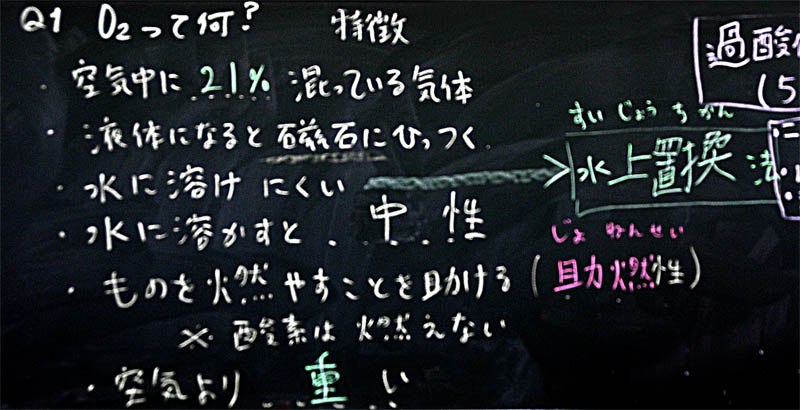 Q1 O₂って何? 特徴
・空気中に 21% 混っている気体
・液体になると磁石にひっつく
・水に溶けにくい
すいじょうちかん
水上置換法
・水に溶かすと 中性
じょねんせい
・ものを燃やすことを助ける(助燃性)
※酸素は燃えない
・空気より 重い
過酸
(5